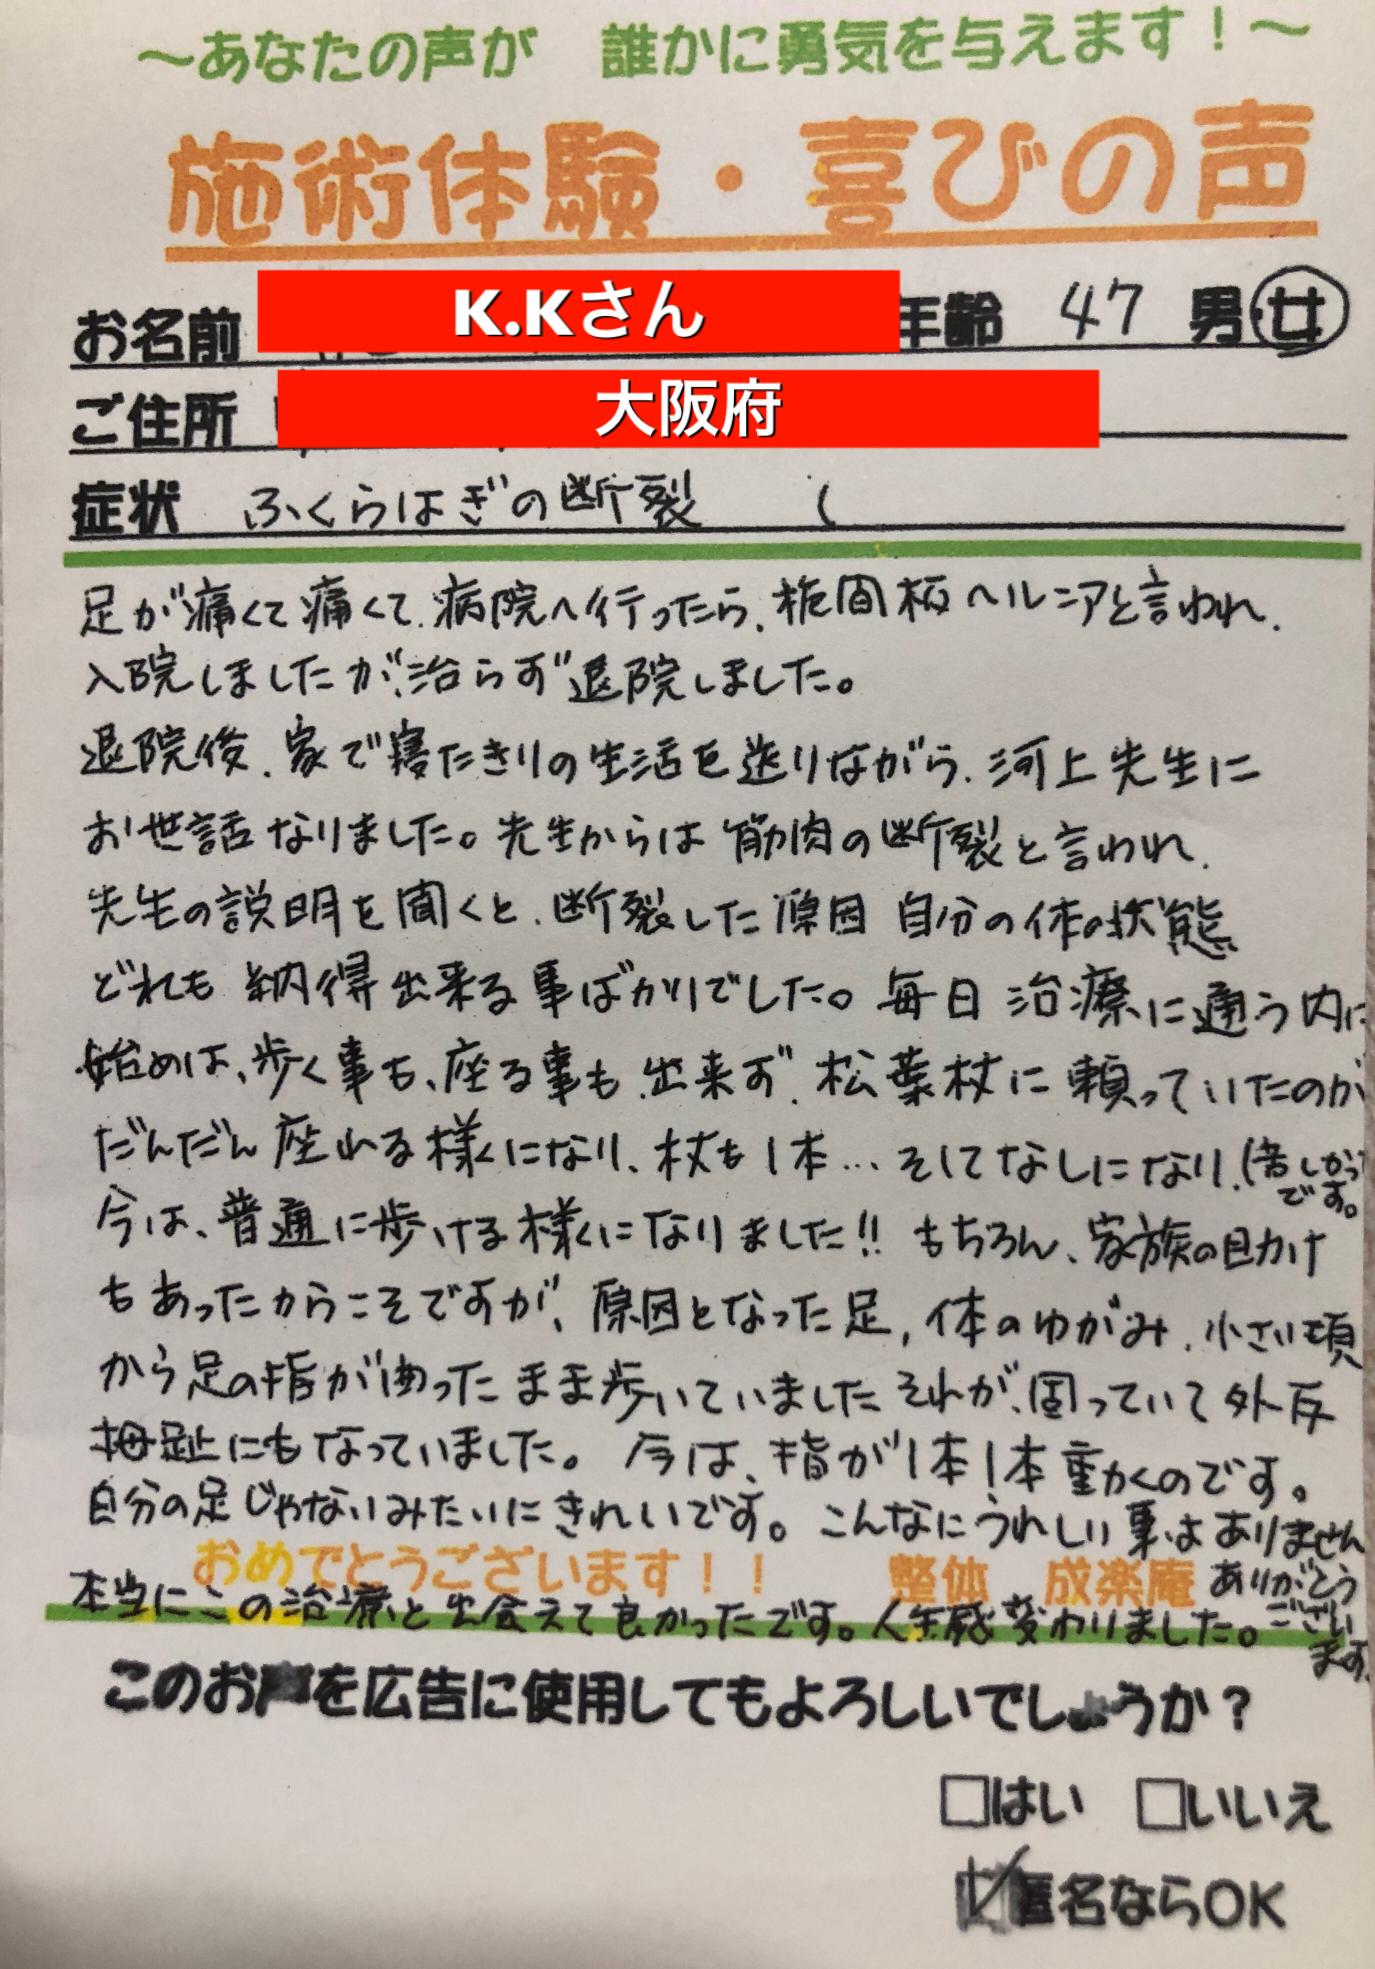 ～あなたの声が　誰かに勇気を与えます！～
施術体験・喜びの声
お名前 K.Kさん 年齢 47 男・女
ご住所 大阪府
症状 ふくらはぎの断裂 (
足が痛くて痛くて、病院へ行ったら、椎間板ヘルニアと言われ、
入院しましたが、治らず退院しました。
退院後、家で寝たきりの生活を送りながら、河上先生に
お世話なりました。先生からは筋肉の断裂と言われ、
先生の説明を聞くと、断裂した原因 自分の体の状態
どれも納得出来る事ばかりでした。毎日治療に通う内に
始めは、歩く事も、座る事も、出来ず、松葉杖に頼っていたのが
だんだん座れる様くになり、杖も1本…そしてなしになり、(苦しかっ
です。
今は、普通に歩ける様くになりました!! もちろん、家族の助け
もあったからこそですが、原因となった足，体のゆがみ、小さい頃
から足の指が曲ったまま歩いていました それが、固っていて外反
拇趾にもなっていました。今は、指が1本1本動くのです。
自分の足じゃないみたいにきれいです。こんなにうれしい事はありません
おめでとうございます！！　整体　成楽庵
本当にこの治療と出会えて良かったです。人生感変わりました。
ありがとう
ござい
ます。
このお声を広告に使用してもよろしいでしょうか？
□はい　□いいえ
☑匿名ならOK